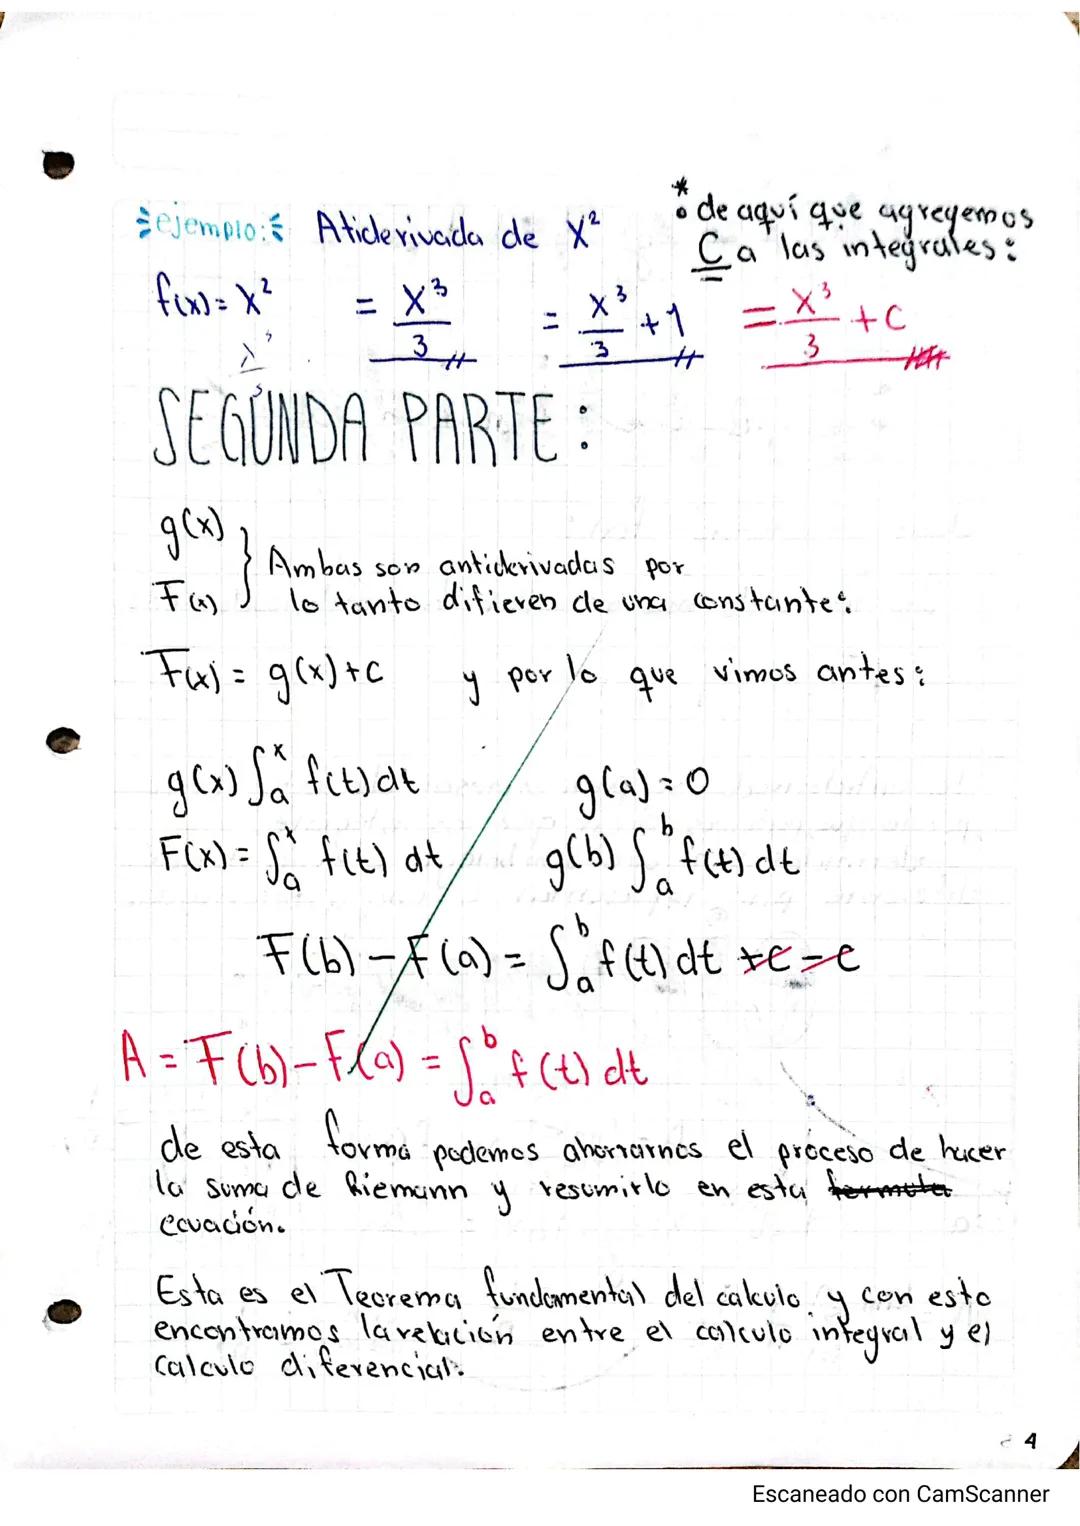 ejemplo: Atiderivada de x²
* de aquí que agregemos
C a las integrales:
f(x) = x² = x³/3 = x³/3 + 1 = x³/3 + C
SEGUNDA PARTE:
g(x)
F(x) } Ambas son antiderivadas por
lo tanto difieren de una constante:
F(x) = g(x) + C y por lo que vimos antes:
g(x) ∫ₐˣ f(t) dt g(a) = 0
F(x) = ∫ₐˣ f(t) dt g(b) ∫ₐᵇ f(t) dt
F(b) – F(a) = ∫ₐᵇ f(t) dt + c – c
A = F(b) – F(a) = ∫ₐᵇ f(t) dt
de esta forma podemos ahorrarnos el proceso de hacer
la suma de Riemann y resumirlo en esta formula
ecuación.
Esta es el Teorema fundamental del calculo y con esto
encontramos la relación entre el calculo integral y el
calculo diferencial.
4
Escaneado con CamScanner